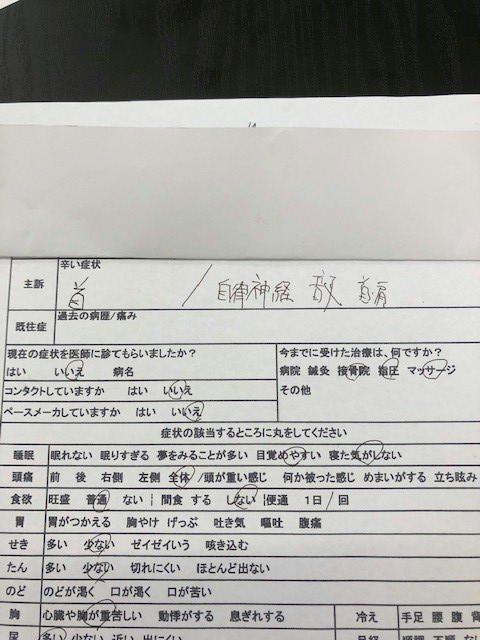 辛い症状
主訴
首 / 自律神経 首肩
過去の病歴/痛み
既往症
現在の症状を医師に診てもらいましたか?
はい いいえ 病名
コンタクトしていますか はい いいえ
ペースメーカしていますか はい いいえ
今までに受けた治療は、何ですか?
病院 鍼灸 接骨院 指圧 マッサージ
その他
症状の該当するところに丸をしてください
睡眠 眠れない 眠りすぎる 夢をみることが多い 目覚めやすい 寝た気がしない
頭痛 前 後 右側 左側 全体 /頭が重い感じ 何か被った感じ めまいがする 立ち眩み
食欲 旺盛 普通 ない ¦間食 する しない ¦便通 1日/ 回
胃 胃がつかえる 胸やけ げっぷ 吐き気 嘔吐 腹痛
せき 多い 少ない ゼイゼイいう 咳き込む
たん 多い 少ない 切れにくい ほとんど出ない
のど のどが渇く 口が渇く 口が苦い
胸 心臓や胸が重苦しい 動悸がする 息ぎれする 冷え 手足 腰 腹 背
尿 多い 少ない 近い 出にくい